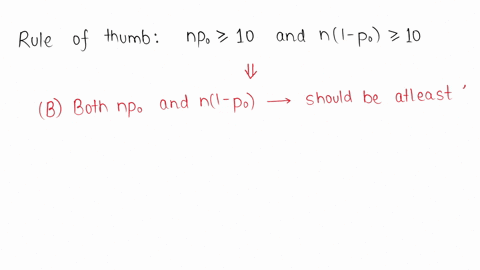 Rule of thumb: np₀ ⩾ 10 and n(1-p₀) ⩾ 10
⇓
(B) Both np₀ and n(1-p₀) → should be atleast